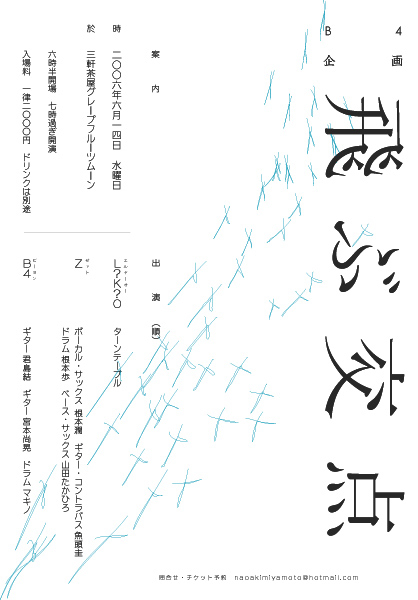 B4企画
飛ぶ交点
案内
時 二〇〇六年六月一四日 水曜日
於 三軒茶屋グレープフルーツムーン
六時半開場 七時過ぎ開演
入場料 一律二〇〇〇円 ドリンクは別途
出演(順)
エルケーオー
L?K?O ターンテーブル
ゼット
Z ボーカル・サックス 根本潤 ギター・コントラバス 魚頭圭
ドラム 根本歩 ベース・サックス 山田たかひろ
ビーヨン
B4 ギター 君島結 ギター 宮本尚晃 ドラム マキノ
問合せ・チケット予約 naoakimiyamoto@hotmail.com